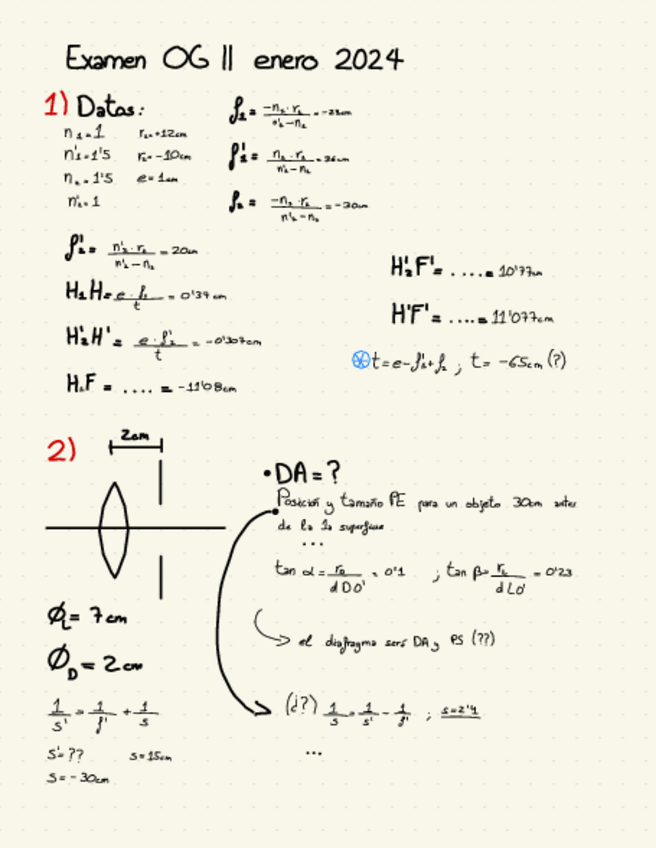 Examen OG II enero 2024
1) Datos:
n₁=1 r₁=+12cm
n'₁=1'5 r₂=-10cm
n₂=1'5 e=1cm
n'₂=1
f₁= -n₁·r₁ / n'₁-n₁ =-24cm
f'₁= n'₁·r₁ / n'₁-n₁ =36cm
f₂= -n₂·r₂ / n'₂-n₂ =-30cm
f'₂= n'₂·r₂ / n'₂-n₂ = 20cm
H₁H= e·f₁ / t = 0'37cm
H'₂H'= e·f'₂ / t = -0'307cm
H₁F = .... = -11'08cm
H'₂F'= ....= 10'77cm
H'F'= ....= 11'077cm
t=e-f'₁+f₂ ; t= -65cm (?)
2)
2cm
•DA=?
Posición y tamaño PE para un objeto 30cm antes
de la 1a superficie
...
tan α= / dDO' = 0'1 ; tan β= / dLO' = 0'23
el diafragma será DA y PS (??)
Ø_L= 7cm
Ø_D= 2cm
1/s' = 1/f' + 1/s
s'=?? s=15cm
s=-30cm
(¿?) 1/s = 1/s' - 1/f' ; s=2'4
...